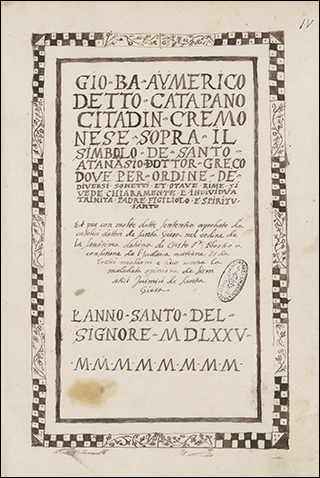 IV
GIO · BA · AVMERICO
DETTO · CATAPANO
CITADIN · CREMO
NESE · SOPRA · IL
SIMBOLO · DE · SANTO
ATANASIO · DOTTOR · GRECO
DOVE PER · ORDINE · DE
DIVERSI · SONETTI · ET OTAVE RIME · SI
VEDE CHIARAMENTE · E · INDIVIDVA
TRINITA · PADRE · FIGILIOLO · E · SPIRITV
SANTO
Et piu con molte dotte sententie aprobate da
dottori de santa Giesa nel ordine de
la santissima de Cristo
natione
moderni e contra la
maledeta opinione de
Inimici de santa
Giesa
LANNO · SANTO · DEL
SIGNORE · MDLXXV ·
M · M · M · M · M · M · M · M ·